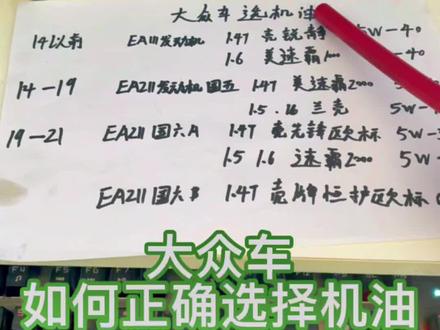 大众车选机油
14以前 EA111发动机 1.4T 壳锐静 5W-40
1.6 美速霸 5W-40
14-19 EA211发动机 国五 1.4T 美速霸2000 5W
1.5 .16 兰壳 5W
19-21 EA211 国六A 1.4T 壳先锋欧标 5W-3
1.5 1.6 速霸2000 5W
EA211国六B 1.4T 壳牌恒护欧标
大众车
如何正确选择机油